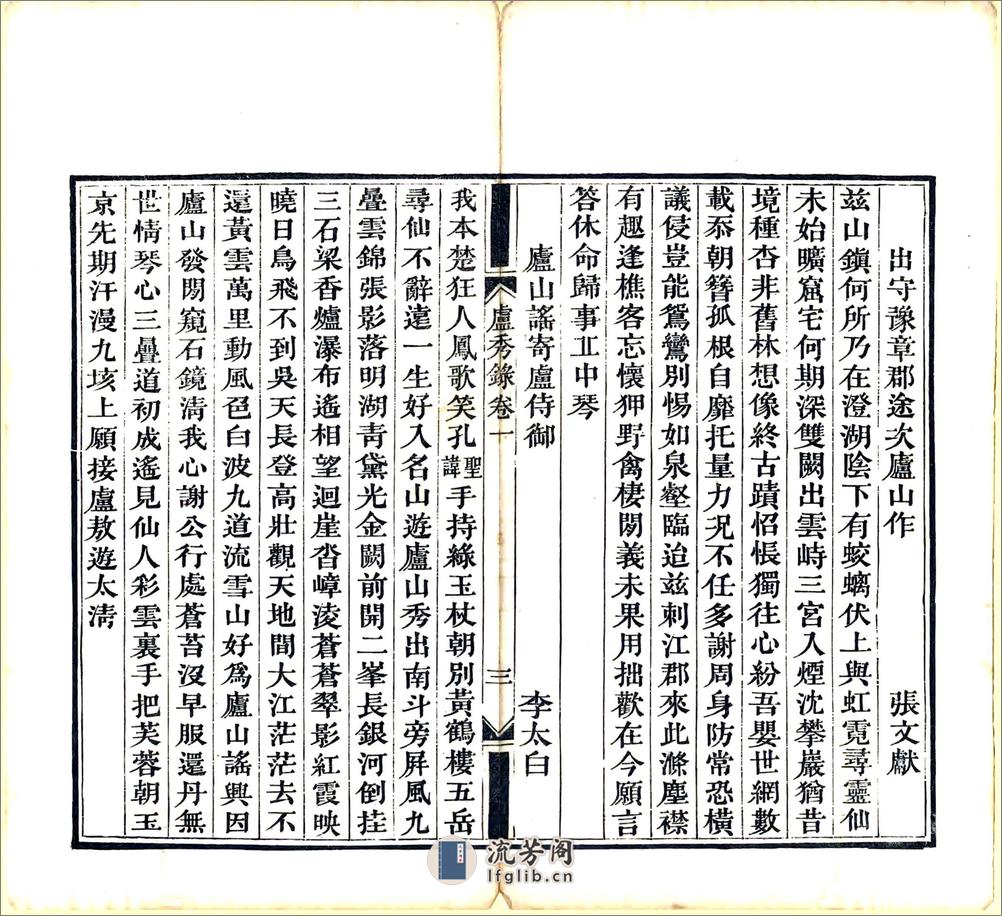 出守豫章郡途次廬山作 張文獻
茲山鎭何所乃在澄湖陰下有蛟螭伏上與虹霓尋靈仙
未始曠窟宅何期深雙闕出雲峙三宮入煙沈攀巖猶昔
境種杏非舊林想像終古蹟怊悵獨往心紛吾嬰世網數
載忝朝簪孤根自靡托量力况不任多謝周身防常恐橫
議侵豈能鴛鸞別惕如泉壑臨迨茲刺江郡來此滌塵襟
有趣逢樵客忘懷狎野禽棲閒義未果用拙歡在今願言
答休命歸事丘中琴
廬山謠寄盧侍御 李太白
廬秀錄卷一 三
我本楚狂人鳳歌笑孔聖諱手持綠玉杖朝別黃鶴樓五岳
尋仙不辭遠一生好入名山遊廬山秀出南斗旁屏風九
疊雲錦張影落明湖靑黛光金闕前開二峯長銀河倒挂
三石梁香爐瀑布遙相望迴崖沓嶂淩蒼蒼翠影紅霞映
曉日鳥飛不到吳天長登高壯觀天地間大江茫茫去不
還黃雲萬里動風色白波九道流雪山好爲廬山謠興因
廬山發閒窺石鏡淸我心謝公行處蒼苔沒早服還丹無
世情琴心三疊道初成遙見仙人彩雲裏手把芙蓉朝玉
京先期汗漫九垓上願接盧敖遊太淸
流芳阁
lfglib.cn